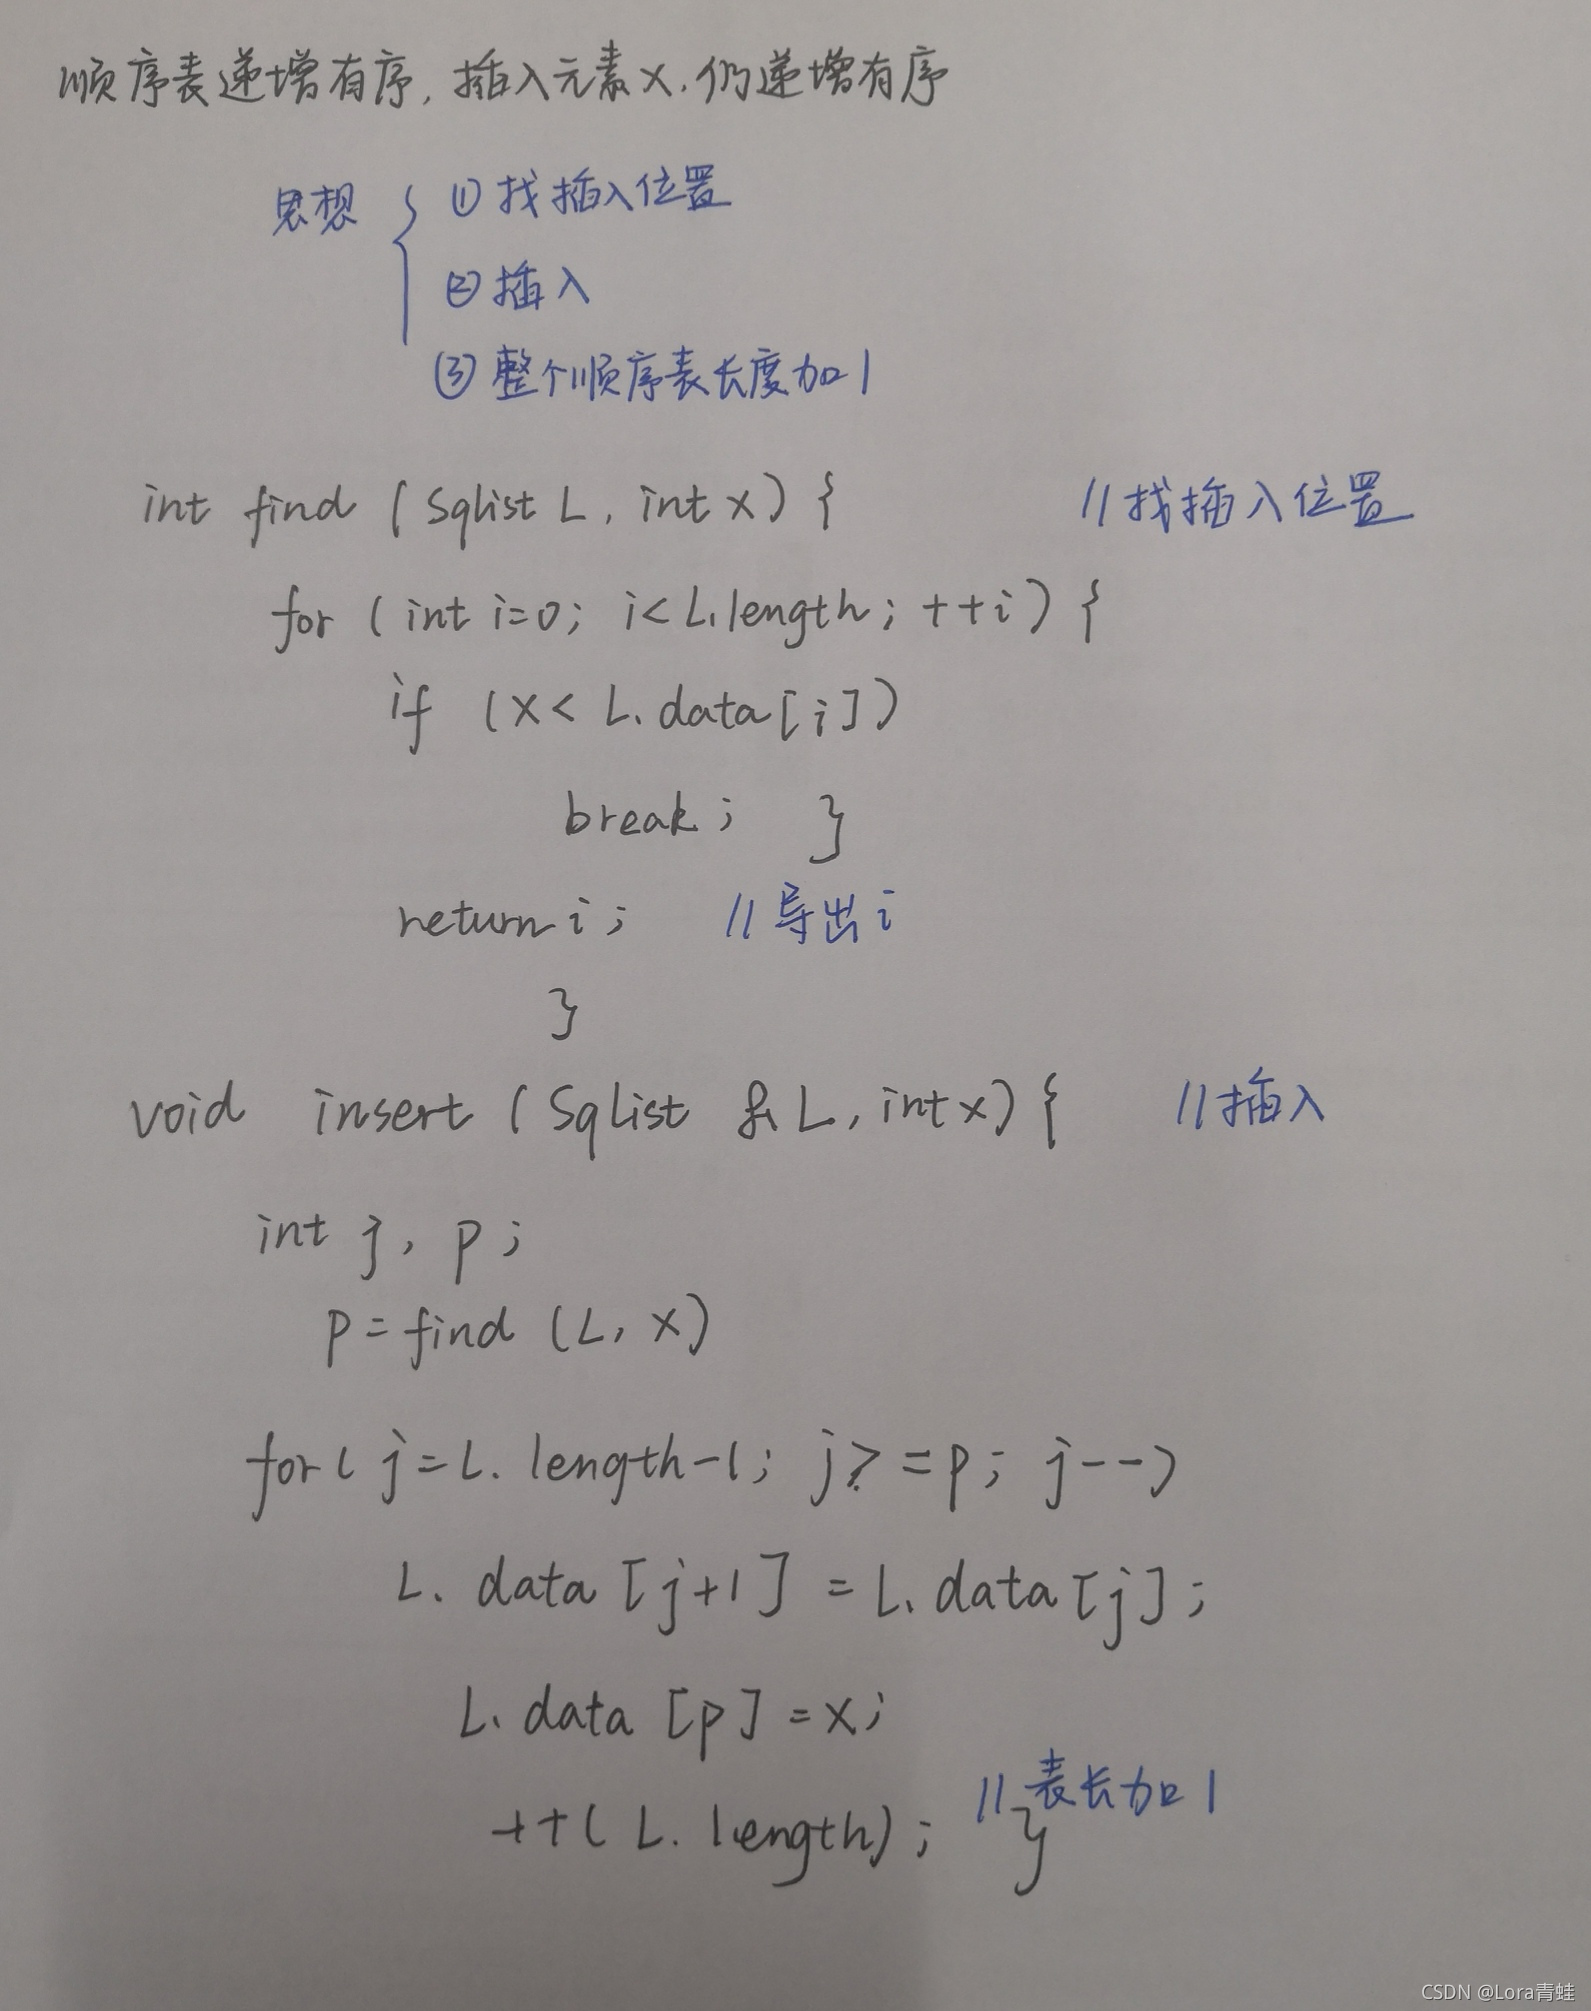 顺序表递增有序, 插入元素x, 仍递增有序
思想 { ① 找插入位置
② 插入
③ 整个顺序表长度加1
int find (Sqlist L, int x) { //找插入位置
for (int i=0; i<L.length; ++i) {
if (x< L.data[i])
break; }
return i; //导出i
}
void insert (SqList &L, int x) { //插入
int j, p;
p=find (L, x)
for( j=L.length-1; j>=p; j--)
L.data [j+1] =L.data[j];
L.data [p] =x;
++( L.length); } //表长加1
CSDN @Lora青蛙